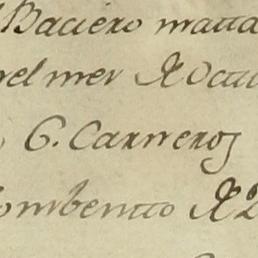 Baciero matta
el mes de Octu
6. Carneros
ombento de 2